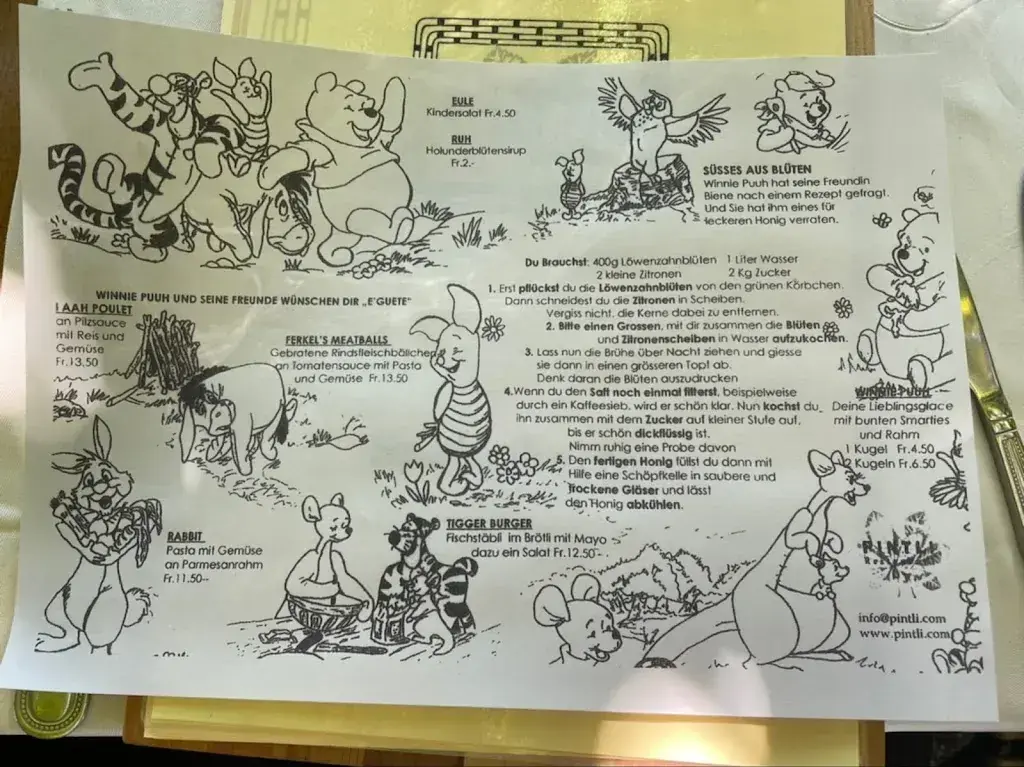 EULE
Kindersalat Fr.4.50
RUH
Holunderblütensirup
Fr.2.-
SÜSSES AUS BLÜTEN
Winnie Puuh hat seine Freundin
Biene nach einem Rezept gefragt.
Und Sie hat ihm eines für
leckeren Honig verraten.
Du Brauchst: 400g Löwenzahnblüten 1 Liter Wasser
2 kleine Zitronen 2 Kg Zucker
1. Erst pflückst du die Löwenzahnblüten von den grünen Körbchen.
Dann schneidest du die Zitronen in Scheiben.
Vergiss nicht, die Kerne dabei zu entfernen.
2. Bitte einen Grossen, mit dir zusammen die Blüten
und Zitronenscheiben in Wasser aufzukochen.
3. Lass nun die Brühe über Nacht ziehen und giesse
sie dann in einen grösseren Topf ab.
Denk daran die Blüten auszudrucken
4.Wenn du den Saft noch einmal filterst, beispielweise
durch ein Kaffeesieb, wird er schön klar. Nun kochst du
ihn zusammen mit dem Zucker auf kleiner Stufe auf,
bis er schön dickflüssig ist.
Nimm ruhig eine Probe davon
5. Den fertigen Honig füllst du dann mit
Hilfe eine Schöpfkelle in saubere und
trockene Gläser und lässt
den Honig abkühlen.
WINNIE PUUH UND SEINE FREUNDE WÜNSCHEN DIR „E'GUETE"
I AAH POULET
an Pilzsauce
mit Reis und
Gemüse
Fr.13.50
FERKEL'S MEATBALLS
Gebratene Rindsfleischbällchen
an Tomatensauce mit Pasta
und Gemüse Fr.13.50
WINNIE-PUUH
Deine Lieblingsglace
mit bunten Smarties
und Rahm
1 Kugel Fr.4.50
2 Kugeln Fr.6.50
RABBIT
Pasta mit Gemüse
an Parmesanrahm
Fr.11.50--
TIGGER BURGER
Fischstäbli im Brötli mit Mayo
dazu ein Salat Fr.12.50-
PINTLI
info@pintli.com
www.pintli.com